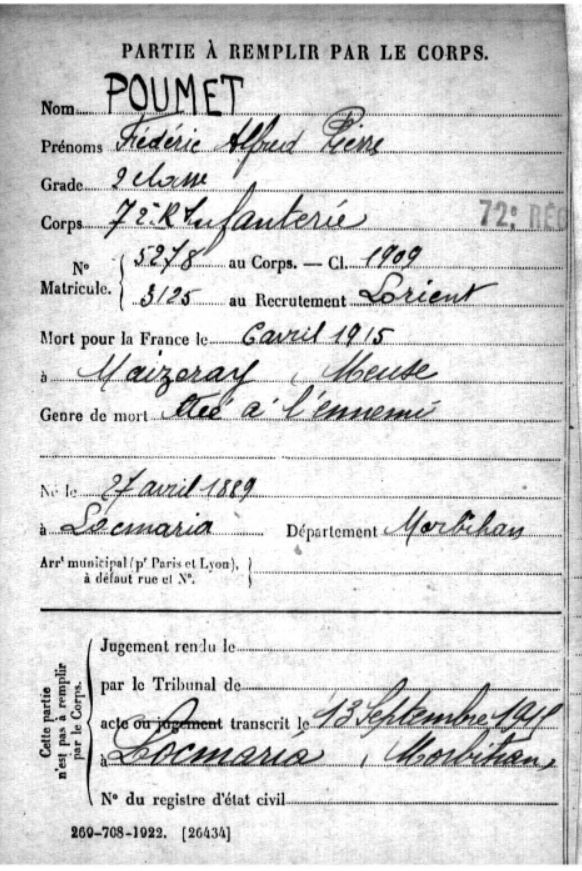 PARTIE À REMPLIR PAR LE CORPS.
Nom POUMET
Prénoms Frédéric Alfred Pierre
Grade 2 classe
Corps 72e R Infanterie 72e RÉG
No Matricule. 5278 au Corps. — Cl. 1909
3125 au Recrutement Lorient
Mort pour la France le 6 avril 1915
à Maizeray, Meuse
Genre de mort tué à l'ennemi
Né le 27 avril 1889
à Locmaria Département Morbihan
Arrt municipal (pr Paris et Lyon),
à défaut rue et No.
Cette partie n'est pas à remplir par le Corps.
Jugement rendu le
par le Tribunal de
acte ou jugement transcrit le 13 Septembre
à Locmaria, Morbihan,
No du registre d'état civil
269-708-1922. [26434]